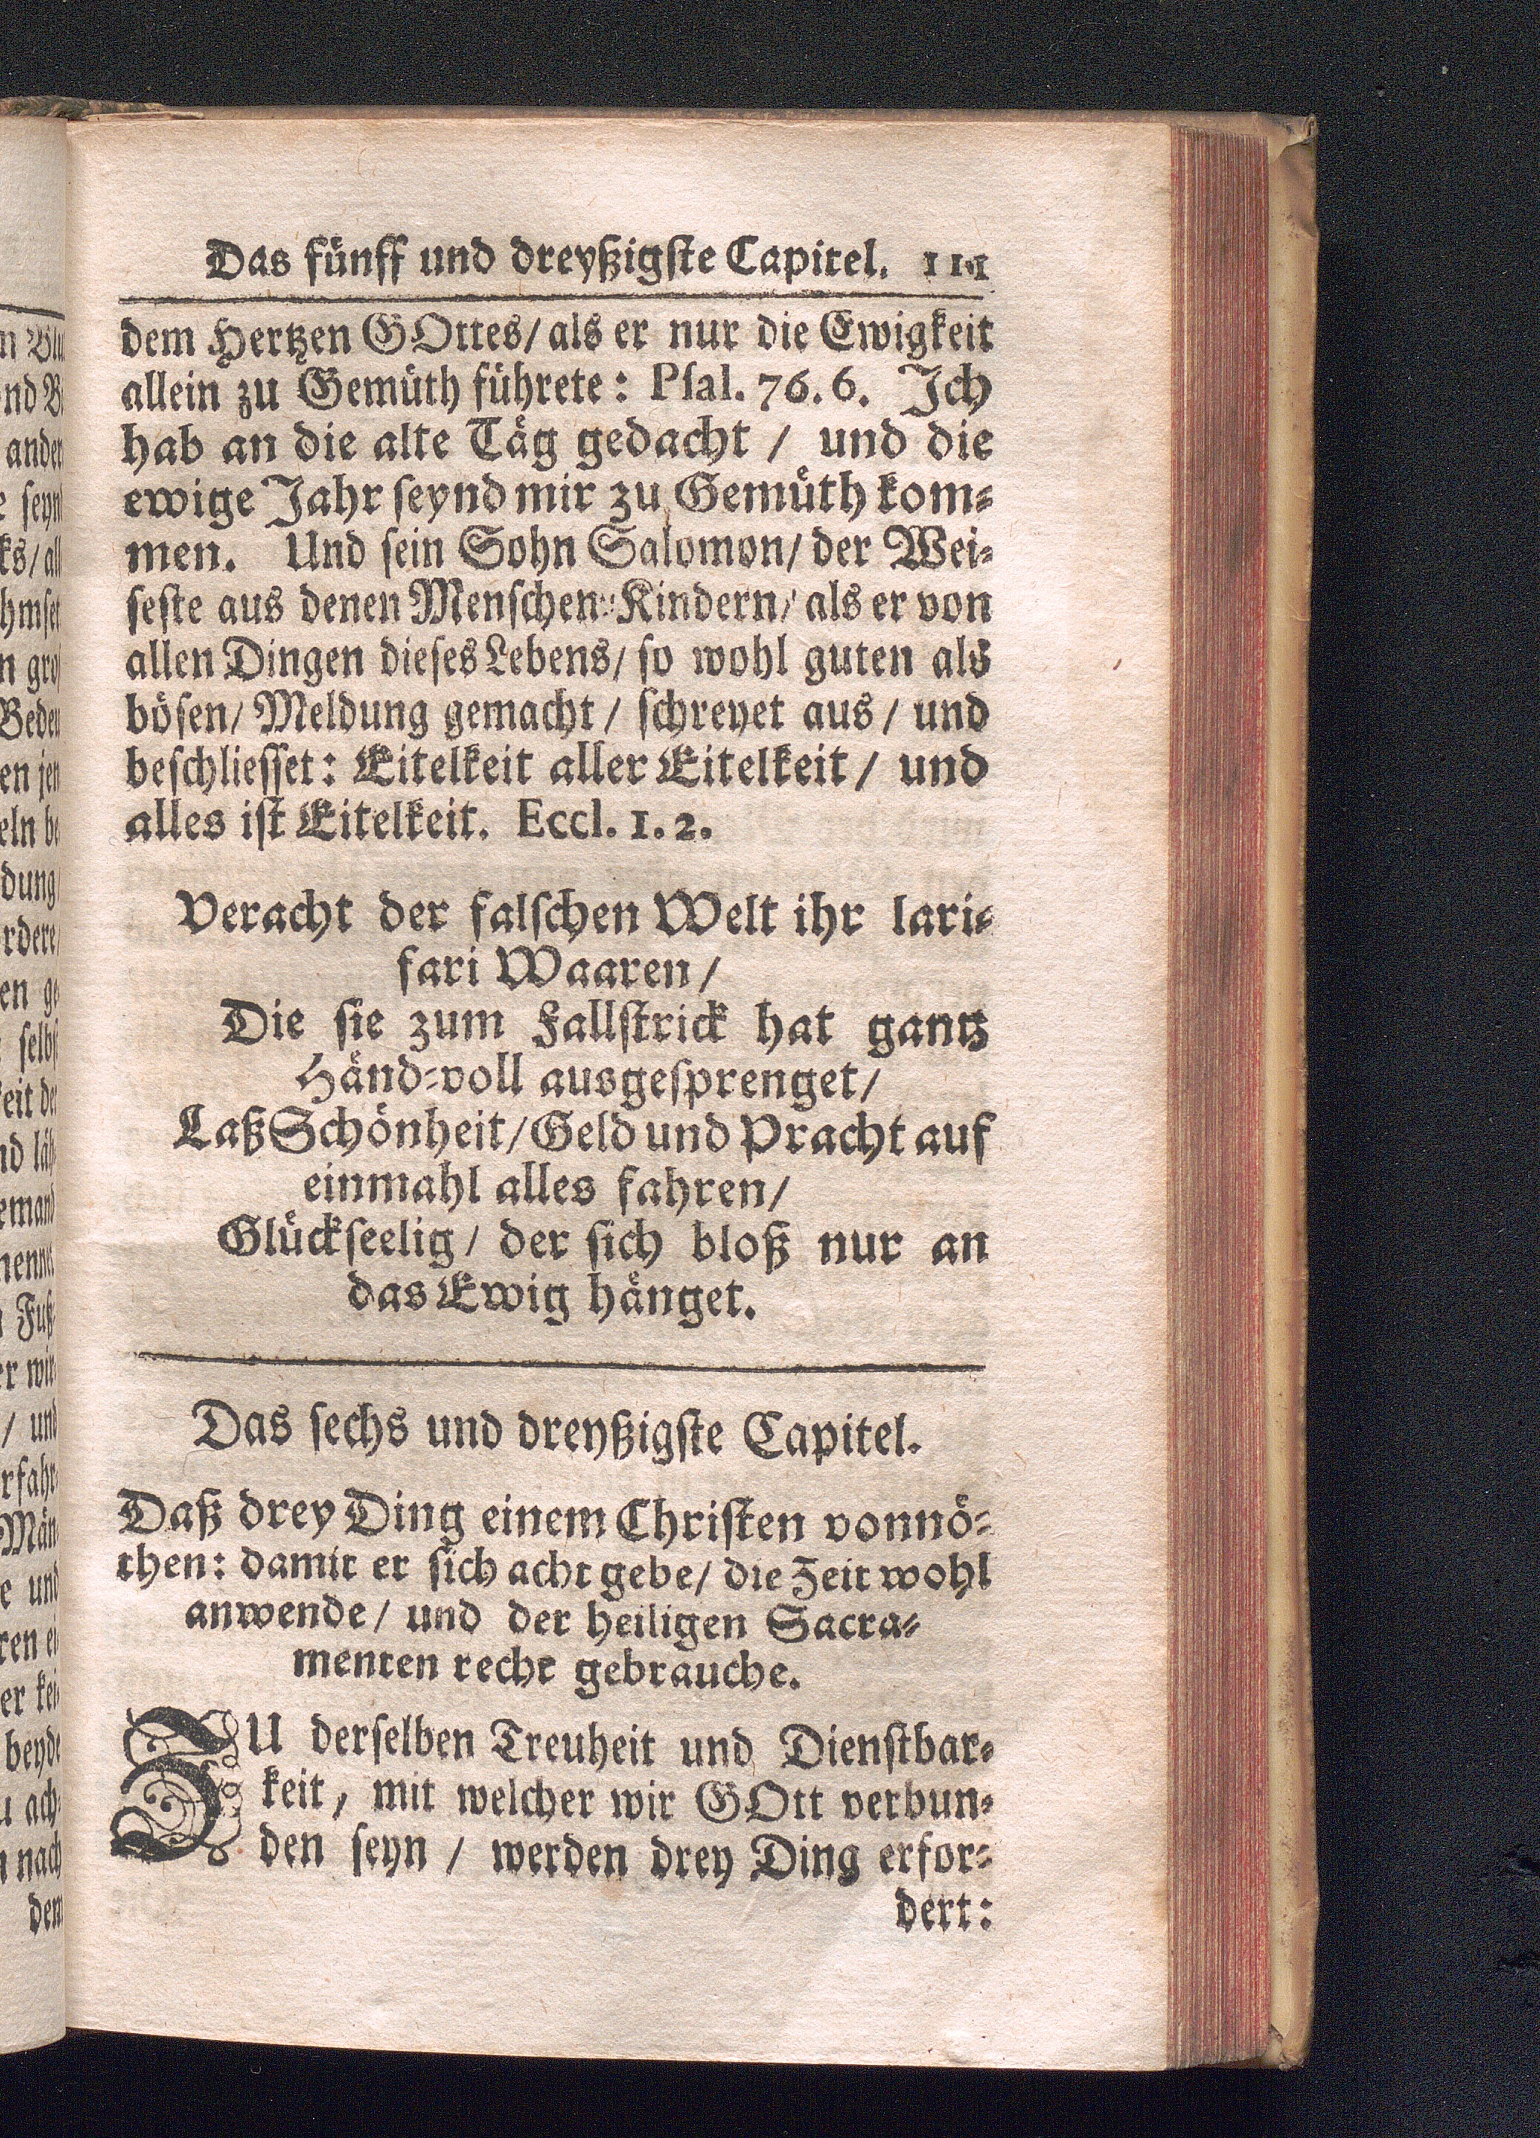 Das fünff und dreyßigste Capitel. 111
dem Hertzen GOttes/ als er nur die Ewigkeit
allein zu Gemüth führete: Psal. 76. 6. Ich
hab an die alte Täg gedacht / und die
ewige Jahr seynd mir zu Gemüth kom-
men. Und sein Sohn Salomon/ der Wei-
seste aus denen Menschen-Kindern/ als er von
allen Dingen dieses Lebens/ so wohl guten als
bösen/ Meldung gemacht / schreyet aus / und
beschliesset: Eitelkeit aller Eitelkeit / und
alles ist Eitelkeit. Eccl. 1. 2.
Veracht der falschen Welt ihr lari-
fari Waaren /
Die sie zum Fallstrick hat gantz
Händ-voll ausgesprenget/
Laß Schönheit/ Geld und Pracht auf
einmahl alles fahren/
Glückseelig / der sich bloß nur an
das Ewig hänget.
Das sechs und dreyßigste Capitel.
Daß drey Ding einem Christen vonnö-
then: damit er sich acht gebe/ die Zeit wohl
anwende/ und der heiligen Sacra-
menten recht gebrauche.
ZU derselben Treuheit und Dienstbar-
keit, mit welcher wir GOtt verbun-
den seyn / werden drey Ding erfor-
dert: